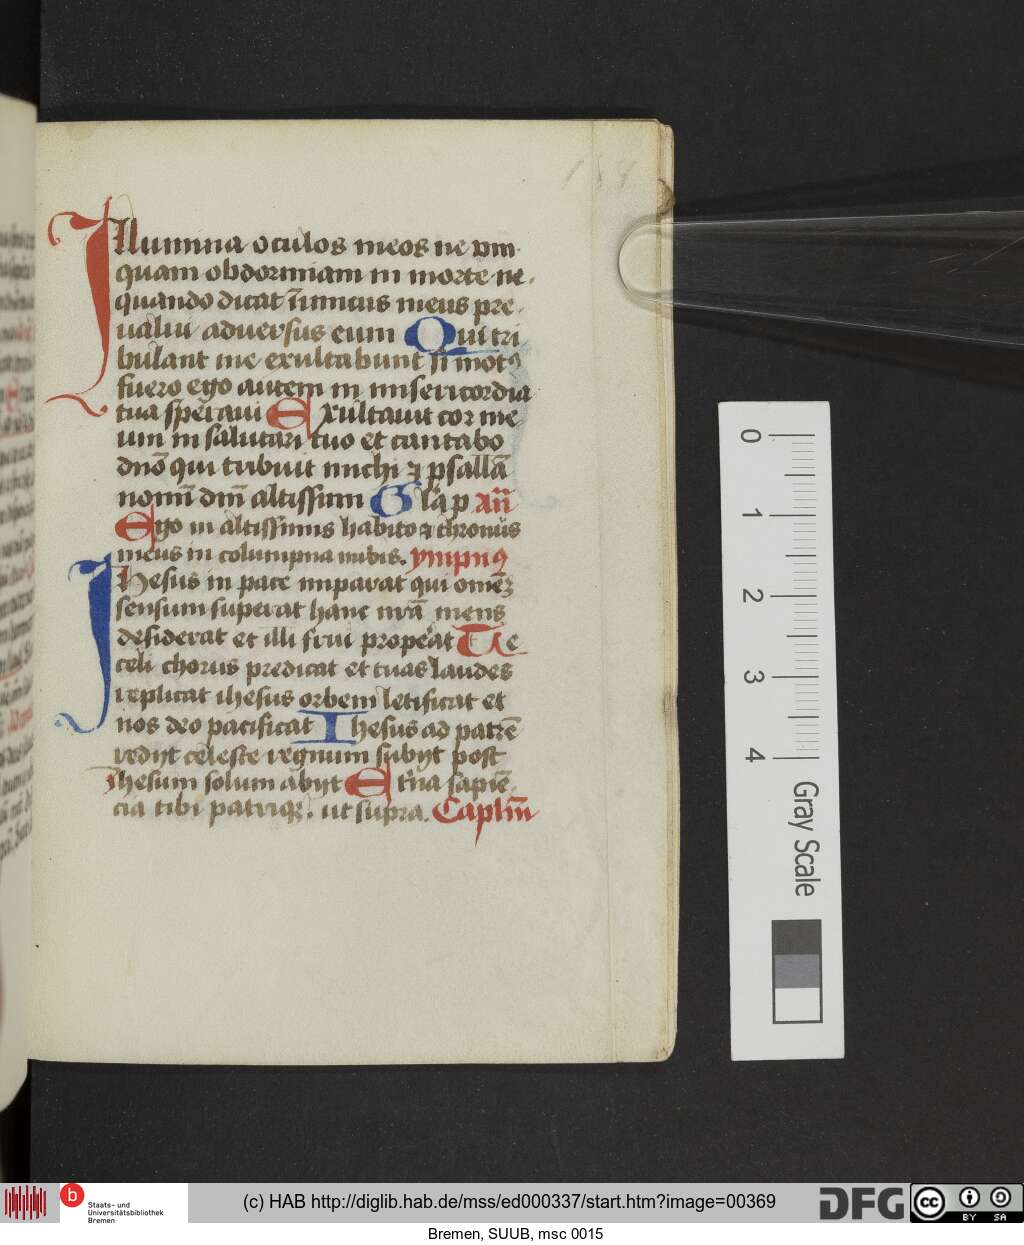 184
Illumina oculos meos ne vm
quam obdormiam in morte ne
quando dicat īimicus meus pre
ualui aduersus eum Qui tri
bulant me exultabunt si motꝰ
fuero ego autem in misericordia
tua speraui Exultauit cor me
um in salutari tuo et cantabo
dnō qui tribuit michi ⁊ psallā
nomīi dm̄ altissimi Gl̄a p an̄
Ego in altissimis habito ⁊ thronūs
meus in columpna nubis. ympnꝰ
Ihesus in pace imparat qui omēꝫ
sensum superat hanc nrā mens
desiderat et illi frui properat Te
celi chorus predicat et tuas laudes
replicat ihesus orbem letificat et
nos deo pacificat Ihesus ad patrē
redijt celeste regnum subijt post
Ihesum solum abijt Et̄na sapiē
cia tibi patriqꝫ. ut supra. Capl̄m
0
1
2
3
4
Gray Scale
b Staats- und
Universitätsbibliothek
Bremen
(c) HAB http://diglib.hab.de/mss/ed000337/start.htm?image=00369
DFG
cc BY SA
Bremen, SUUB, msc 0015